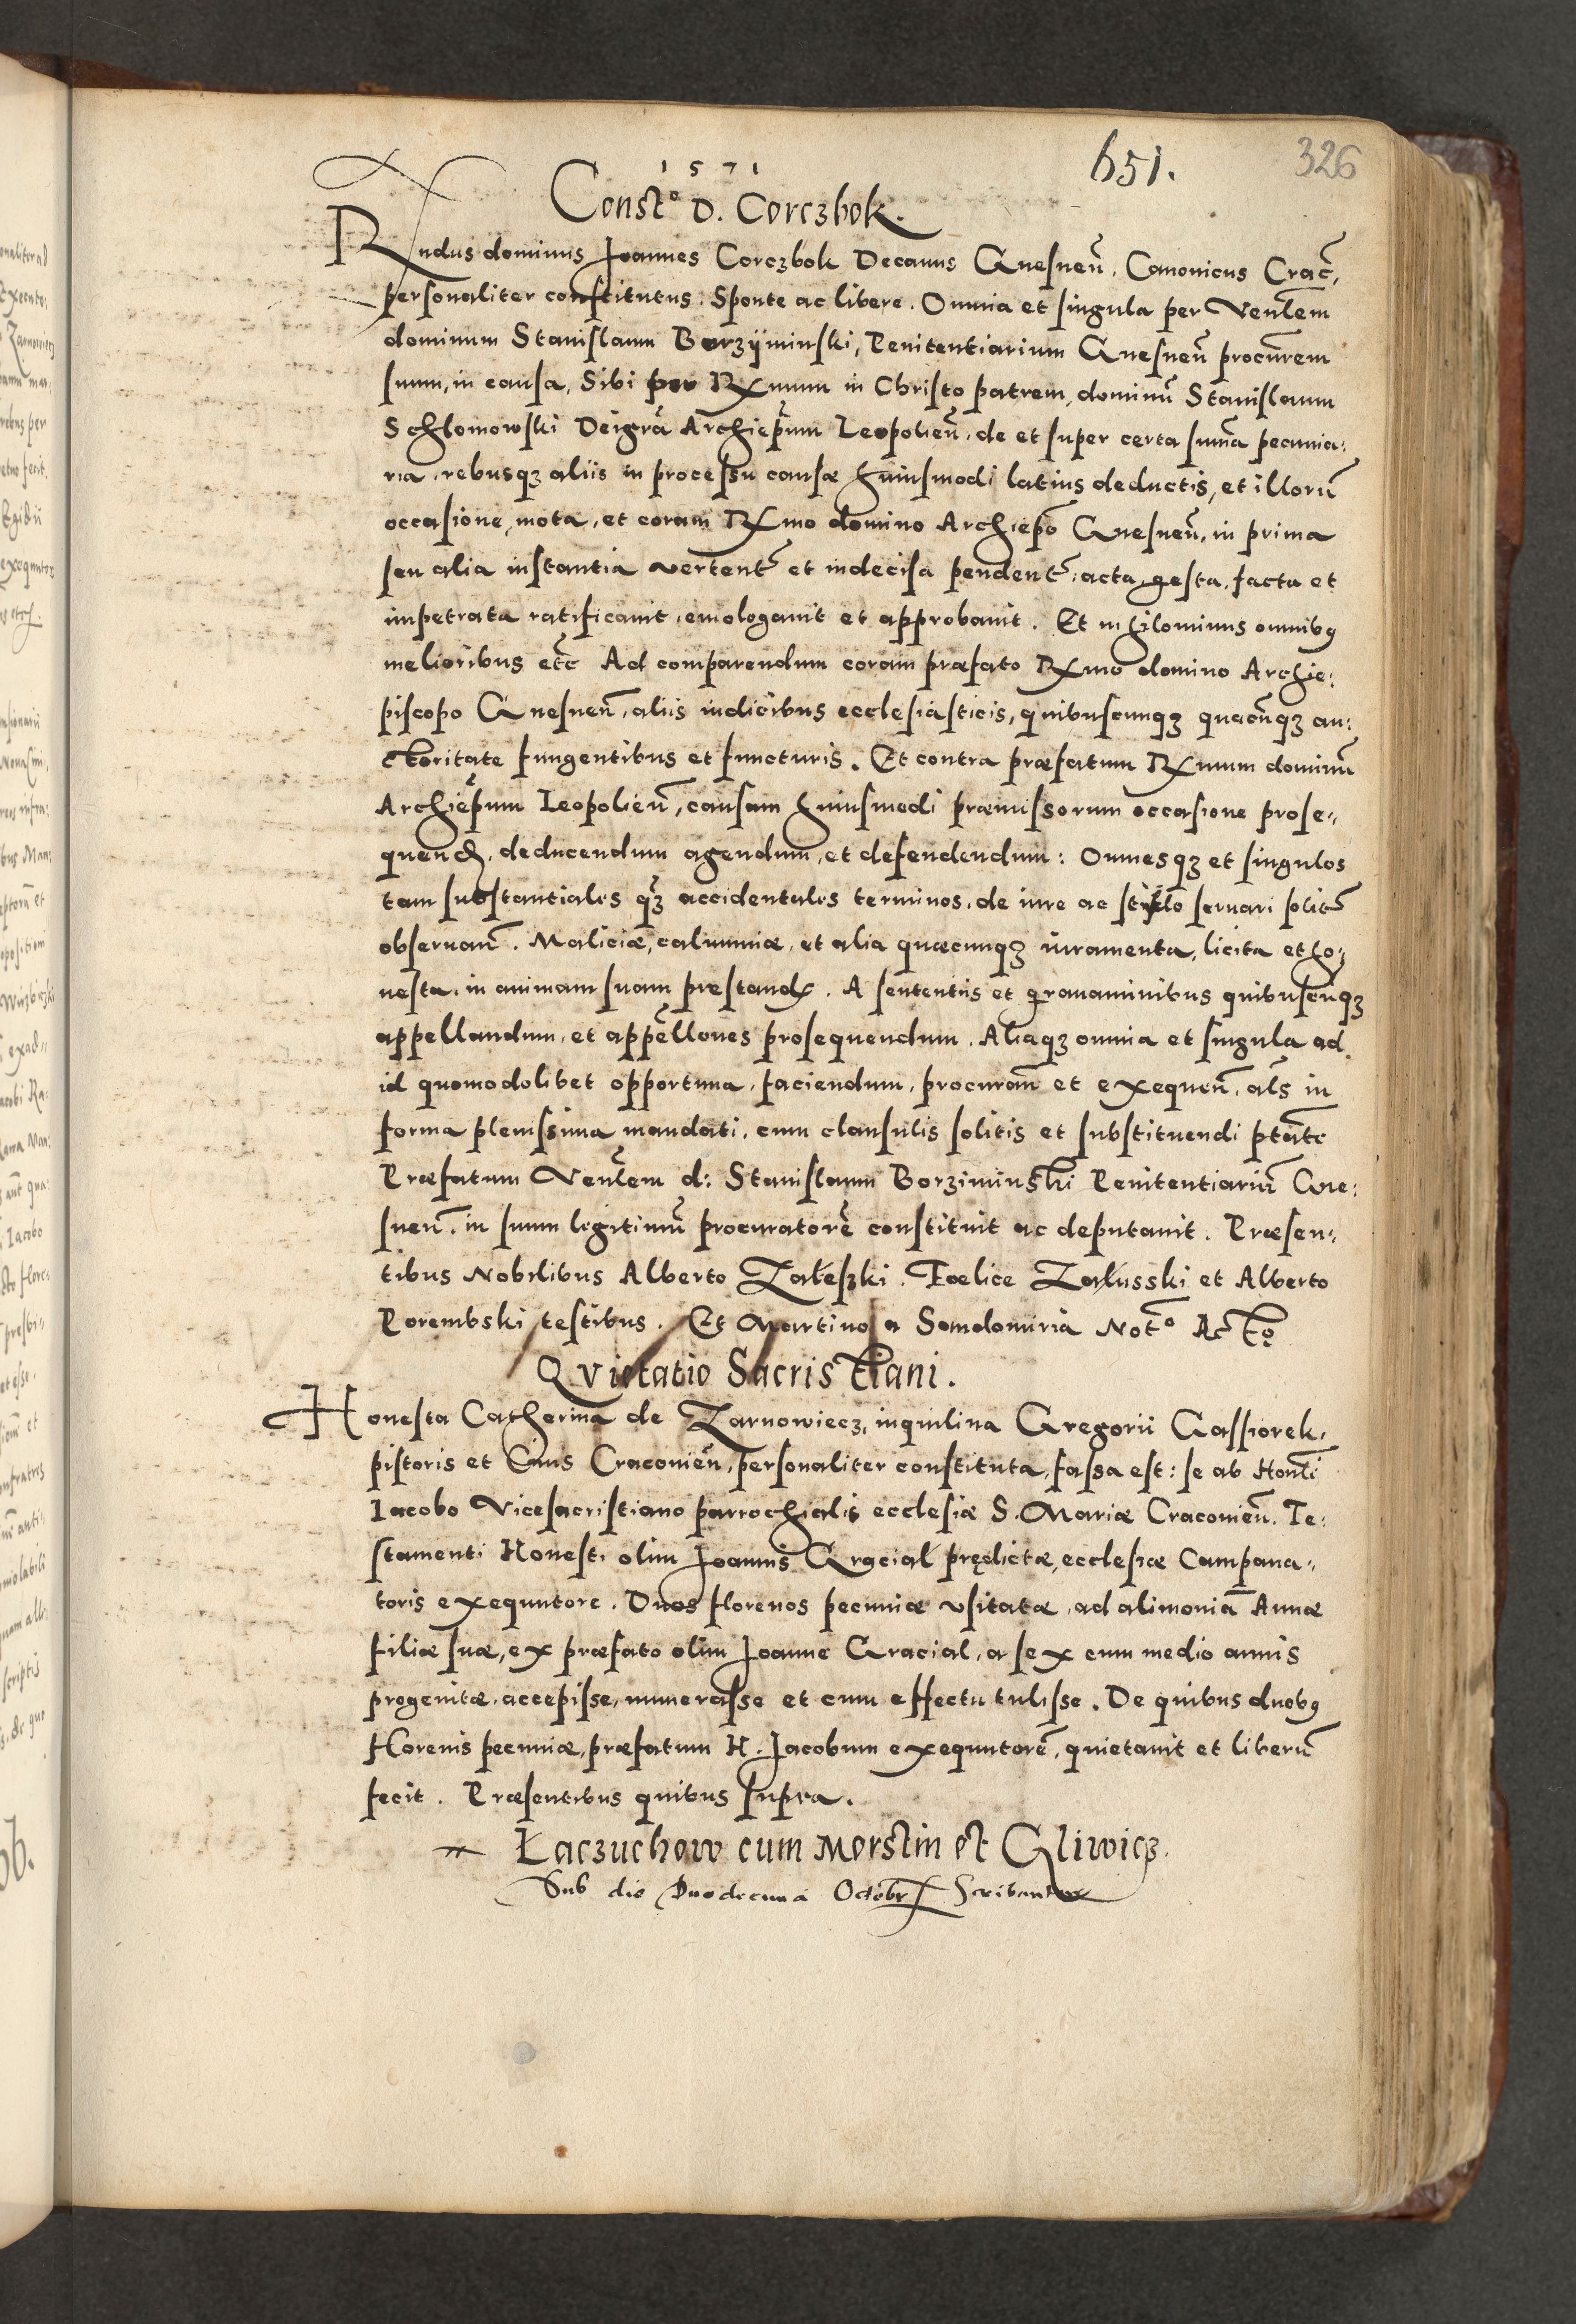 1571
651.
326
Constº D. Corczbok.
Rndus dominus Joannes Corczbok Decanus Gnesnen̄. Canonicus Crac̄,
personaliter constitutus. Sponte ac libere. Omnia et singula per Venl̄em
dominum Stanislaum Borzÿminski, Penitentiarium Gnesnen̄ procur̄em
suum, in causa, Sibi per Rxmum in Christo patrem, dominū Stanislaum
Schlomowski Dei gr̄a Archiep̄um Leopolien̄. de et super certa sum̄a pecunia:
ria, rebusqȝ aliis in processu causæ huiusmodi latius deductis, et illorū
occasione, mota, et coram Rxmo domino Archiep̄o Gnesnen̄, in prima
seu alia instantia vertent̄ et indecisa pendent̄, acta, gesta, facta et
impetrata ratificauit, emologauit et approbauit. Et nihilominus omnibꝫ
melioribus etc̄ Ad comparendum coram præfato Rxmo domino Archie:
piscopo Gnesnen̄, aliis iudicibus ecclesiasticis, quibuscunqȝ quacūqȝ au:
ctoritate fungentibus et functuris. Et contra præfatum Rxmum dominū
Archiep̄um Leopolien̄, causam huiusmodi præmissorum occasione prose„
quend̄, deducendum agendum, et defendendum: Omnesqȝ et singulos
tam substantiales q̄ȝ accidentales terminos, de iure ac stilo seruari solit̄
obseruan̄. Maliciæ, calumniæ, et alia quæcunqȝ iuramenta, licita et ho:
nesta, in animam suam prestand̄. A sententiis et grauaminibus quibuscūqȝ
appellandum, et app̄ellones prosequendum. Aliaqȝ omnia et singula ad
id quomodolibet opportuna, faciendum, procuran̄ et exequen̄, al̄s in
forma plenissima mandati, cum clausulis solitis et substituendi pt̄ate
Præfatum Venl̄em d: Stanislaum Borziminski Penitentiariū Gne:
snen̄. in suum legitimū procuratorē constituit ac deputauit. Præsen„
tibus Nobilibus Alberto Zaleski. Foelice Załusski et Alberto
Porembski testibus. Et Martino a Samdomiria Notº Actº
Qvietatio Sacristiani.
Honesta Catherina de Zarnowiecz, inquilina Gregorii Gassiorek,
pistoris et Ciuis Cracouien̄, personaliter constituta, fassa est: se ab Honl̄i
Iacobo Vicesacristiano parrochialis ecclesiæ S. Mariæ Cracouien̄. Te:
stamenti Honesti olim Joannis Gracial prędictæ, ecclesiæ Campana„
toris exequutore. Duos florenos pecuniæ vsitatæ, ad alimoniā Annæ
filiæ suæ, ex præfato olim Joanne Gracial, a sex cum medio annis
progenitæ, accepisse, numerasse et cum effectu tulisse. De quibus duobꝫ
florenis pecuniæ, præfatum H. Jacobum exequutorē, quietauit et liberū
fecit. Præsentibus quibus supra.
Łaczuchow cum Morstin et Gliwicz.
Sub die Duodecima Octobr̄ Scribantur